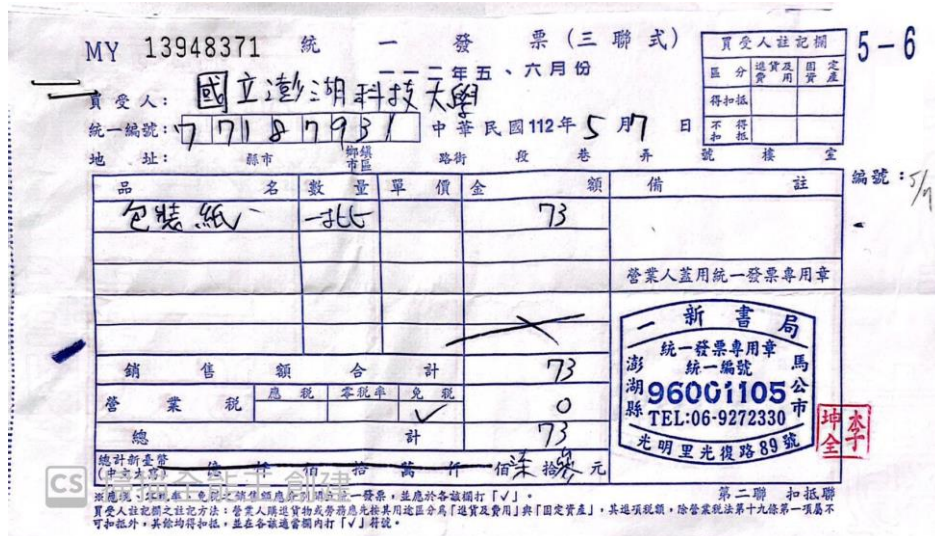 MY 13948371 統一發票(三聯式) 5-6
一一二年五、六月份
買受人註記欄
區分 進貨及費用 固定資產
得扣抵
不得扣抵
買受人: 國立澎湖科技大學
統一編號: 77187931 中華民國112年5月7日
地址: 縣市 鄉鎮市區 路街 段 巷 弄 號 樓 室
編號:5/7
品名 數量 單價 金額 備註
包裝紙 一批 73
營業人蓋用統一發票專用章
銷售額合計 73
營業稅 應稅 零稅率 免稅 ✓ 0
總計 73
總計新臺幣(中文大寫) 億 仟 佰 拾 萬 仟 佰柒拾叁元
一新書局
統一發票專用章
統一編號
96001105
TEL:06-9272330
澎湖縣
馬公市
光明里光復路89號
李坤全
第二聯 扣抵聯
CS 掃描全能王 創建
※應稅、零稅率、免稅之銷售額應分別開立統一發票,並應於各該欄打「✓」。
買受人註記欄之註記方法:營業人購進貨物或勞務應先按其用途區分為「進貨及費用」與「固定資產」,其進項稅額,除營業稅法第十九條第一項屬不
可扣抵外,其餘均得扣抵,並在各該適當欄內打「✓」符號。